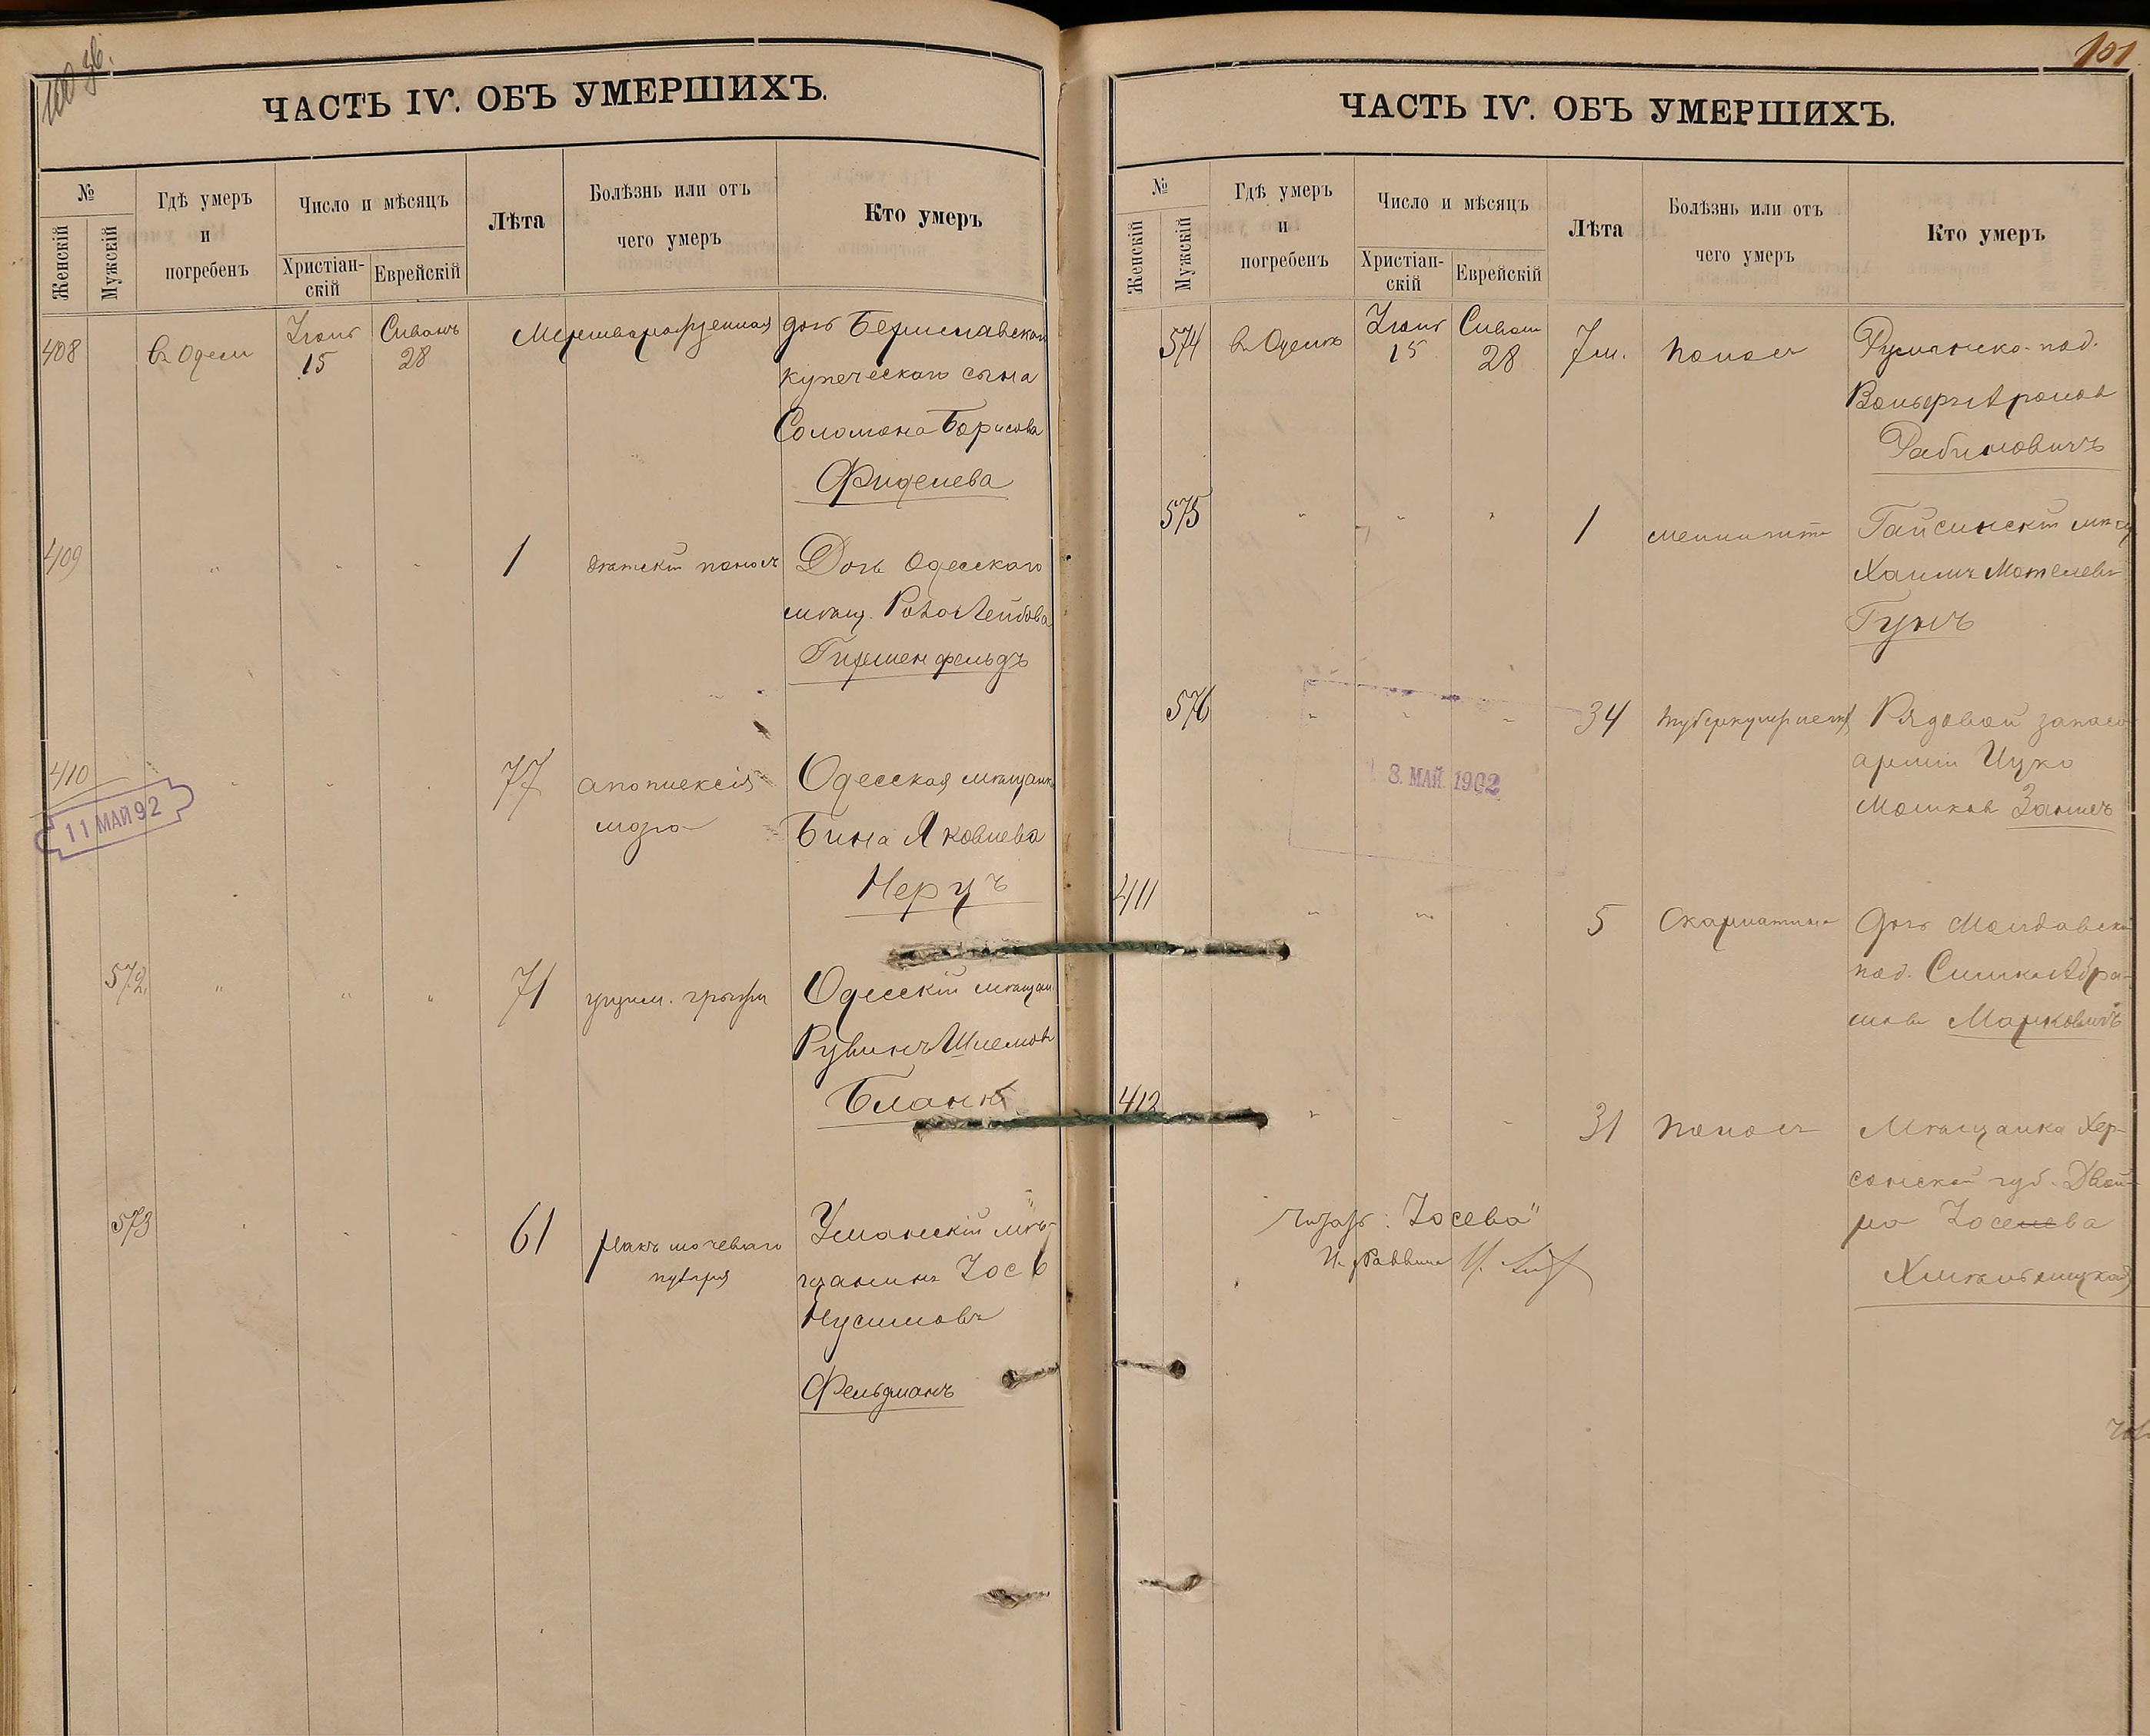 100 об.
ЧАСТЬ IV. ОБЪ УМЕРШИХЪ.
№
Женскій
Мужскій
Гдѣ умеръ
и
погребенъ
Число и мѣсяцъ
Христіан-
скій
Еврейскій
Лѣта
Болѣзнь или отъ
чего умеръ
Кто умеръ
408 въ Одессѣ Іюнь 15 Сиванъ 28 Мертворожденная дочь Бериславскаго
купеческаго сына
Соломона Борисова
Фиделева
409 " " " 1 дѣтскій поносъ Дочь Одесскаго
мѣщ. Лейбова
Гиршенфельдъ
410 " " " 77 апоплексія Одесская мѣщанка
мозга Бина Яковлева
Нерцъ
11 МАЙ 92
572 " " " 71 ущем. грыжи Одесскій мѣщан.
Рувинъ Шлемовъ
Бланкъ
573 " " " 61 ракъ мочеваго Уманскій мѣ-
пузыря щанинъ Іось
Нусимовъ
Фельдманъ
101
ЧАСТЬ IV. ОБЪ УМЕРШИХЪ.
№
Женскій
Мужскій
Гдѣ умеръ
и
погребенъ
Число и мѣсяцъ
Христіан-
скій
Еврейскій
Лѣта
Болѣзнь или отъ
чего умеръ
Кто умеръ
574 въ Одессѣ Іюнь 15 Сиванъ 28 7 м. поносъ Румынско-под.
Вольфъ Ароновъ
Рабиновичъ
575 " " " 1 менингитъ Гайсинскій мѣщ
Хаимъ Мотелевъ
Гунъ
576 " " " 34 туберкулезъ Рядовой запаса
арміи Ицко
Мошковъ
8. МАЙ 1902
411 " " " 5 Скарлатина дочь Молдавск
под. Симхи Абра-
мова Марковичъ
412 " " " 31 поносъ Мѣщанка Хер-
сонской губ. Двой-
ра Іоселева
Хмѣльницкая
читать: "Іосева"
И. д. Раввина